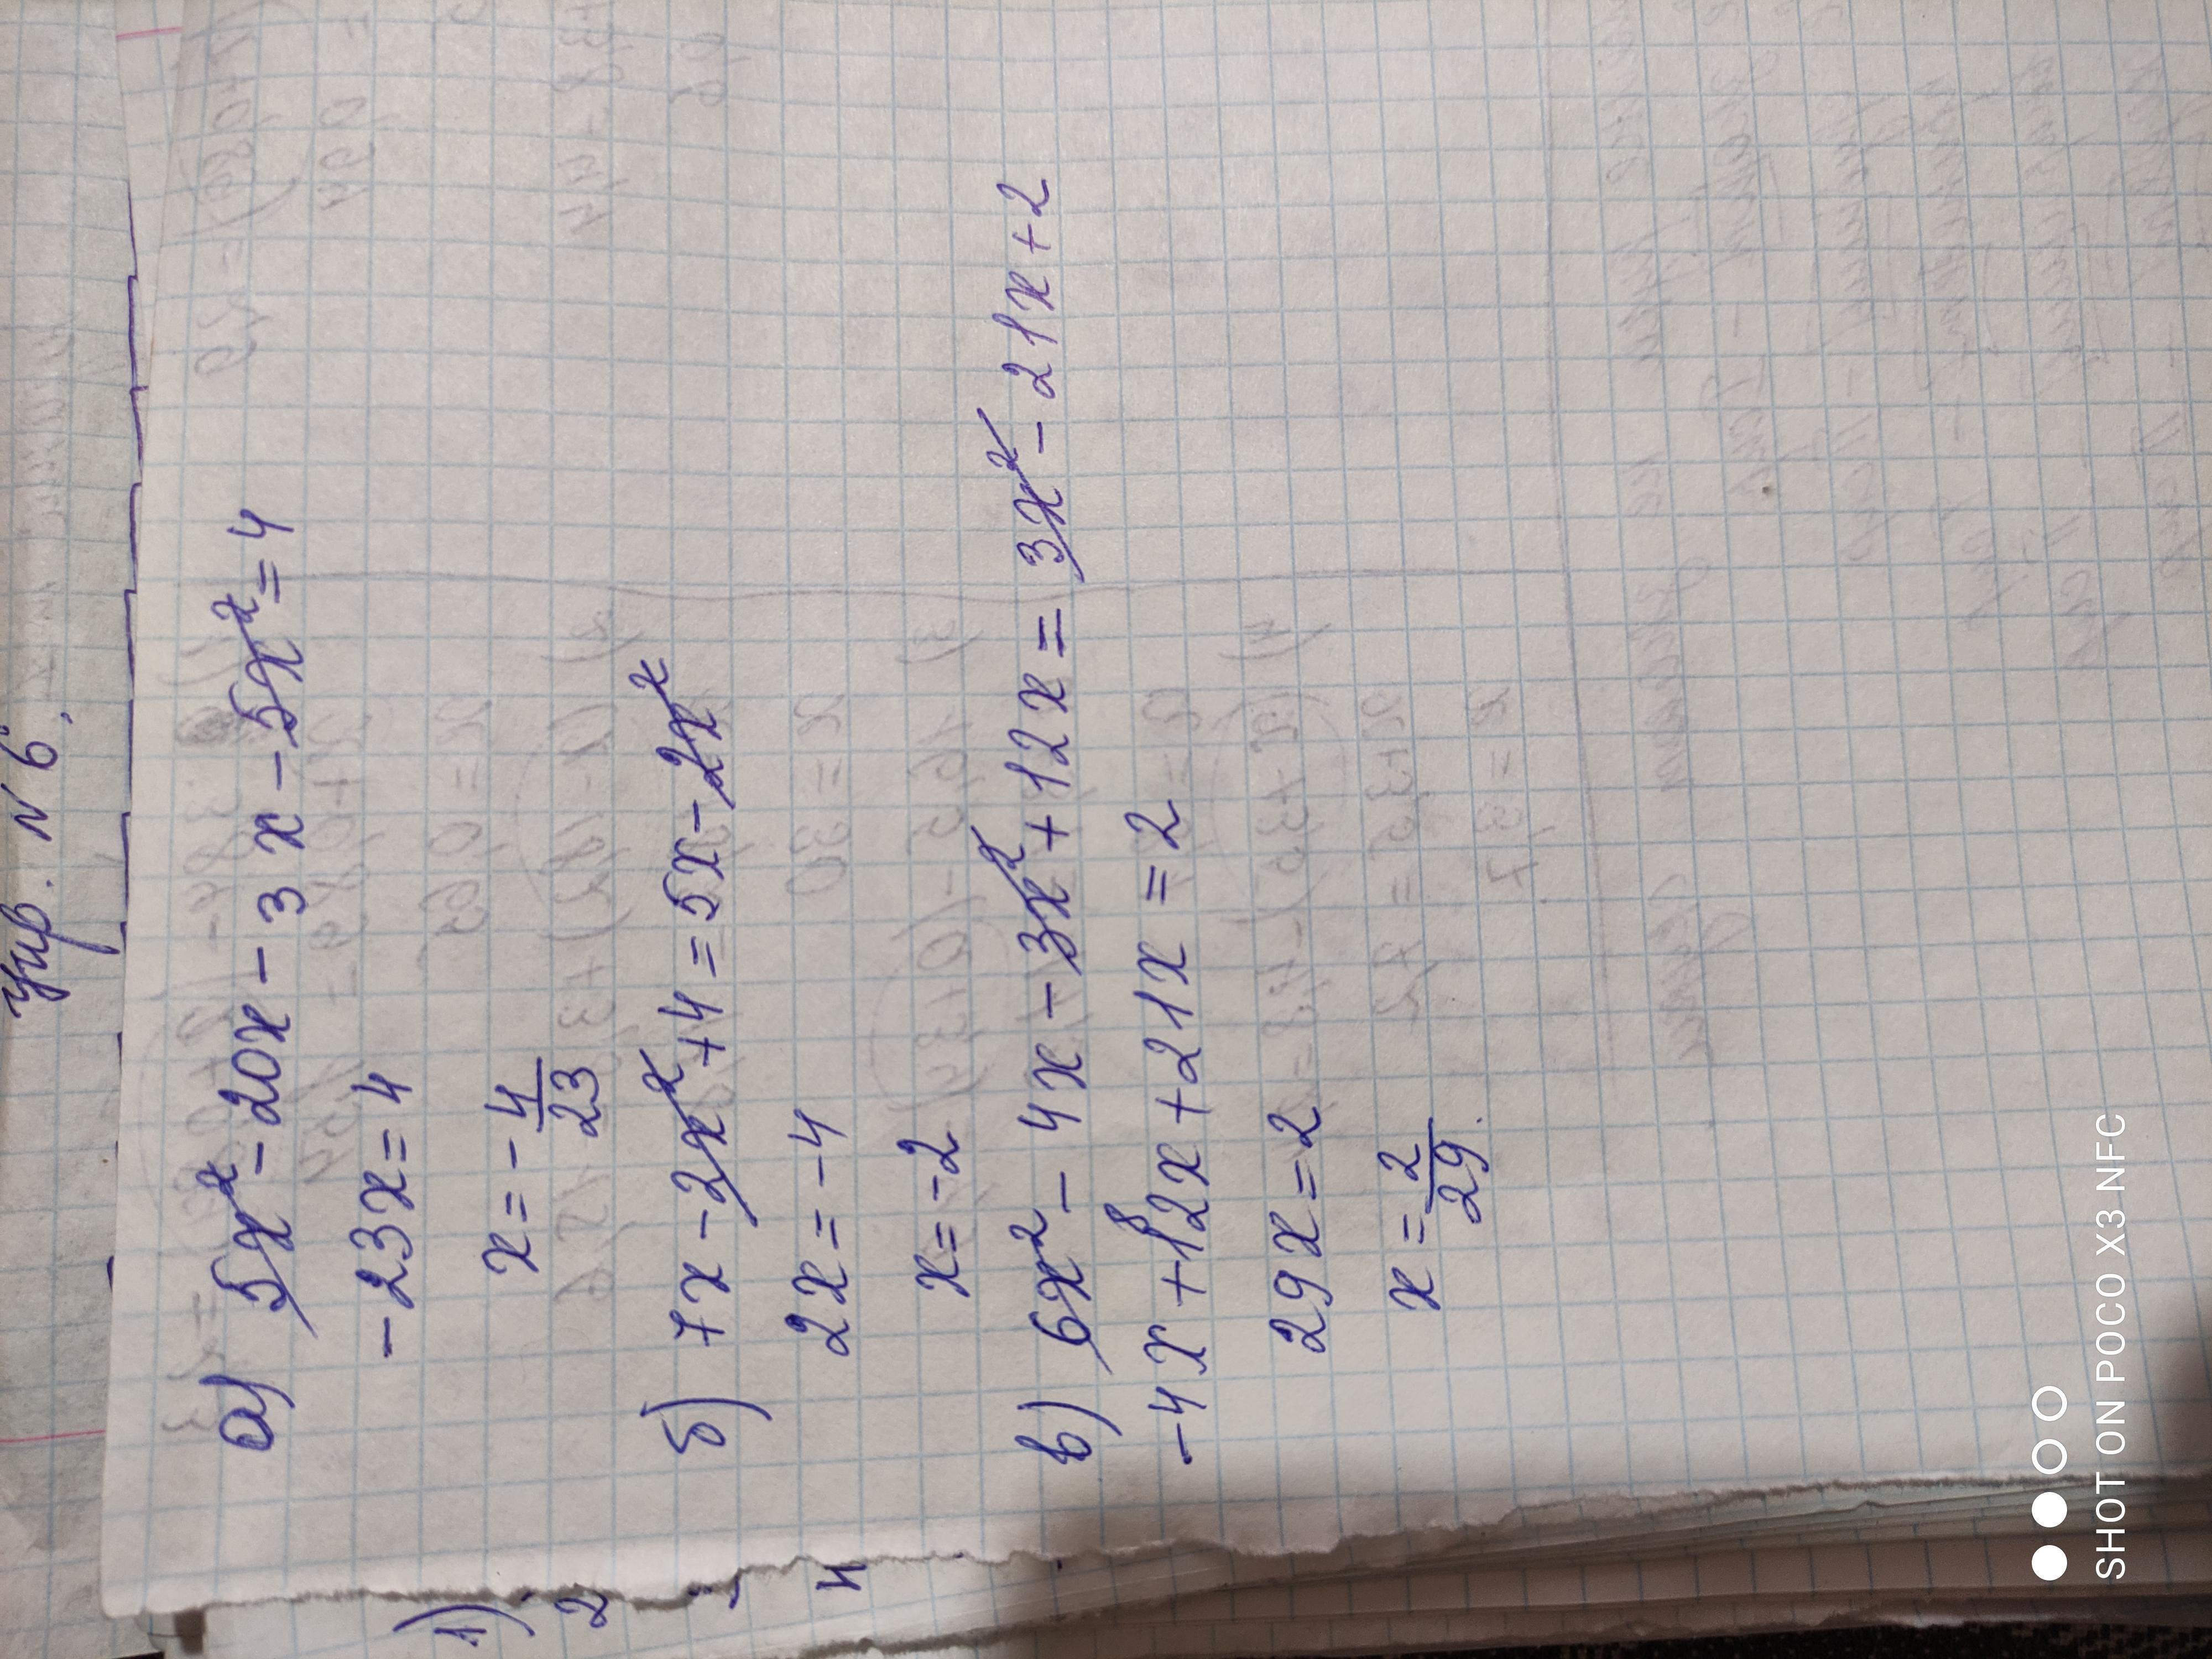 Упр. N 6.
а) 5x² - 20x - 3x - 5x² = 4
-23x = 4
x = -4/23
б) 7x - 2x² + 4 = 5x - 2x²
2x = -4
x = -2
в) 6x² - 4x - 3x² + 12x = 3x² - 21x + 2
-4x + 12x + 21x = 2
29x = 2
x = 2/29.
1)
2
4
SHOT ON POCO X3 NFC